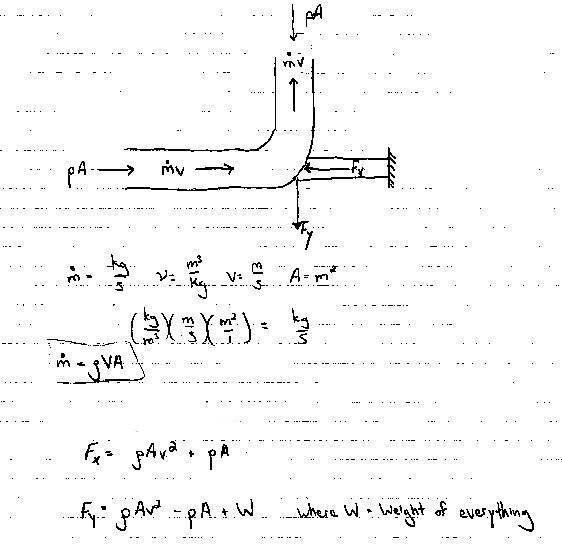 pA
ṁv
pA → ṁv → Fx
Fy
ṁ = kg/s ν = m³/kg V = m/s A = m²
(kg/m³)(m/s)(m²/1) = kg/s
ṁ = ρVA
Fx = ρAv² + pA
Fy = ρAv² - pA + W where W = Weight of everything